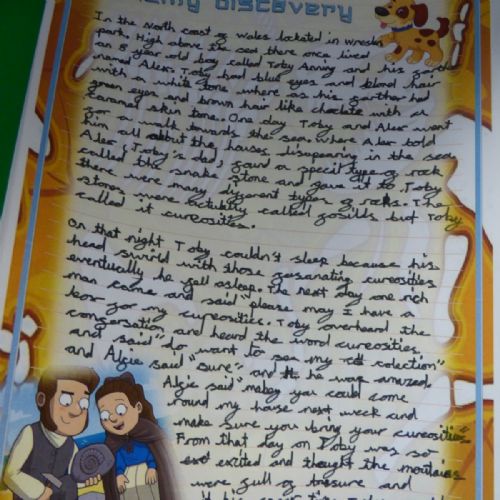 DISCOVERY
In the North coast of wales located in wrexler
park. High above the sea there once lived
an 8 year old boy called Toby Anning and his garther
named Alex. Toby had blue eyes and blond hair
with a white tone where as his garther had
green eyes and brown hair like choclate with a
caramel skin tone. One day Toby and Alex went
for a walk towards the sea where Alex told
him all about the houses disapearing in the sea.
Alex (Toby's dad) found a special type of rock
called the snake stone and gave it to Toby
there were many different types of rocks. The
stones were actually called gossils but Toby
called it cureosities.
On that night Toby couldn't sleep because his
head swirld with those gasanating cureosities
eventually he fell asleep. The next day one rich
man came and said "please may I have a
box for my cureosities. Toby overheard the
conversation and heard the word cureosities
and said "do want to see my colection"
and Algie said "sure" and he was amazed.
Algie said "mabey you could come
round my house next week and
make sure you bring your cureosities"
From that day on Toby was so
excited and thought the mountains
were full of treasure and